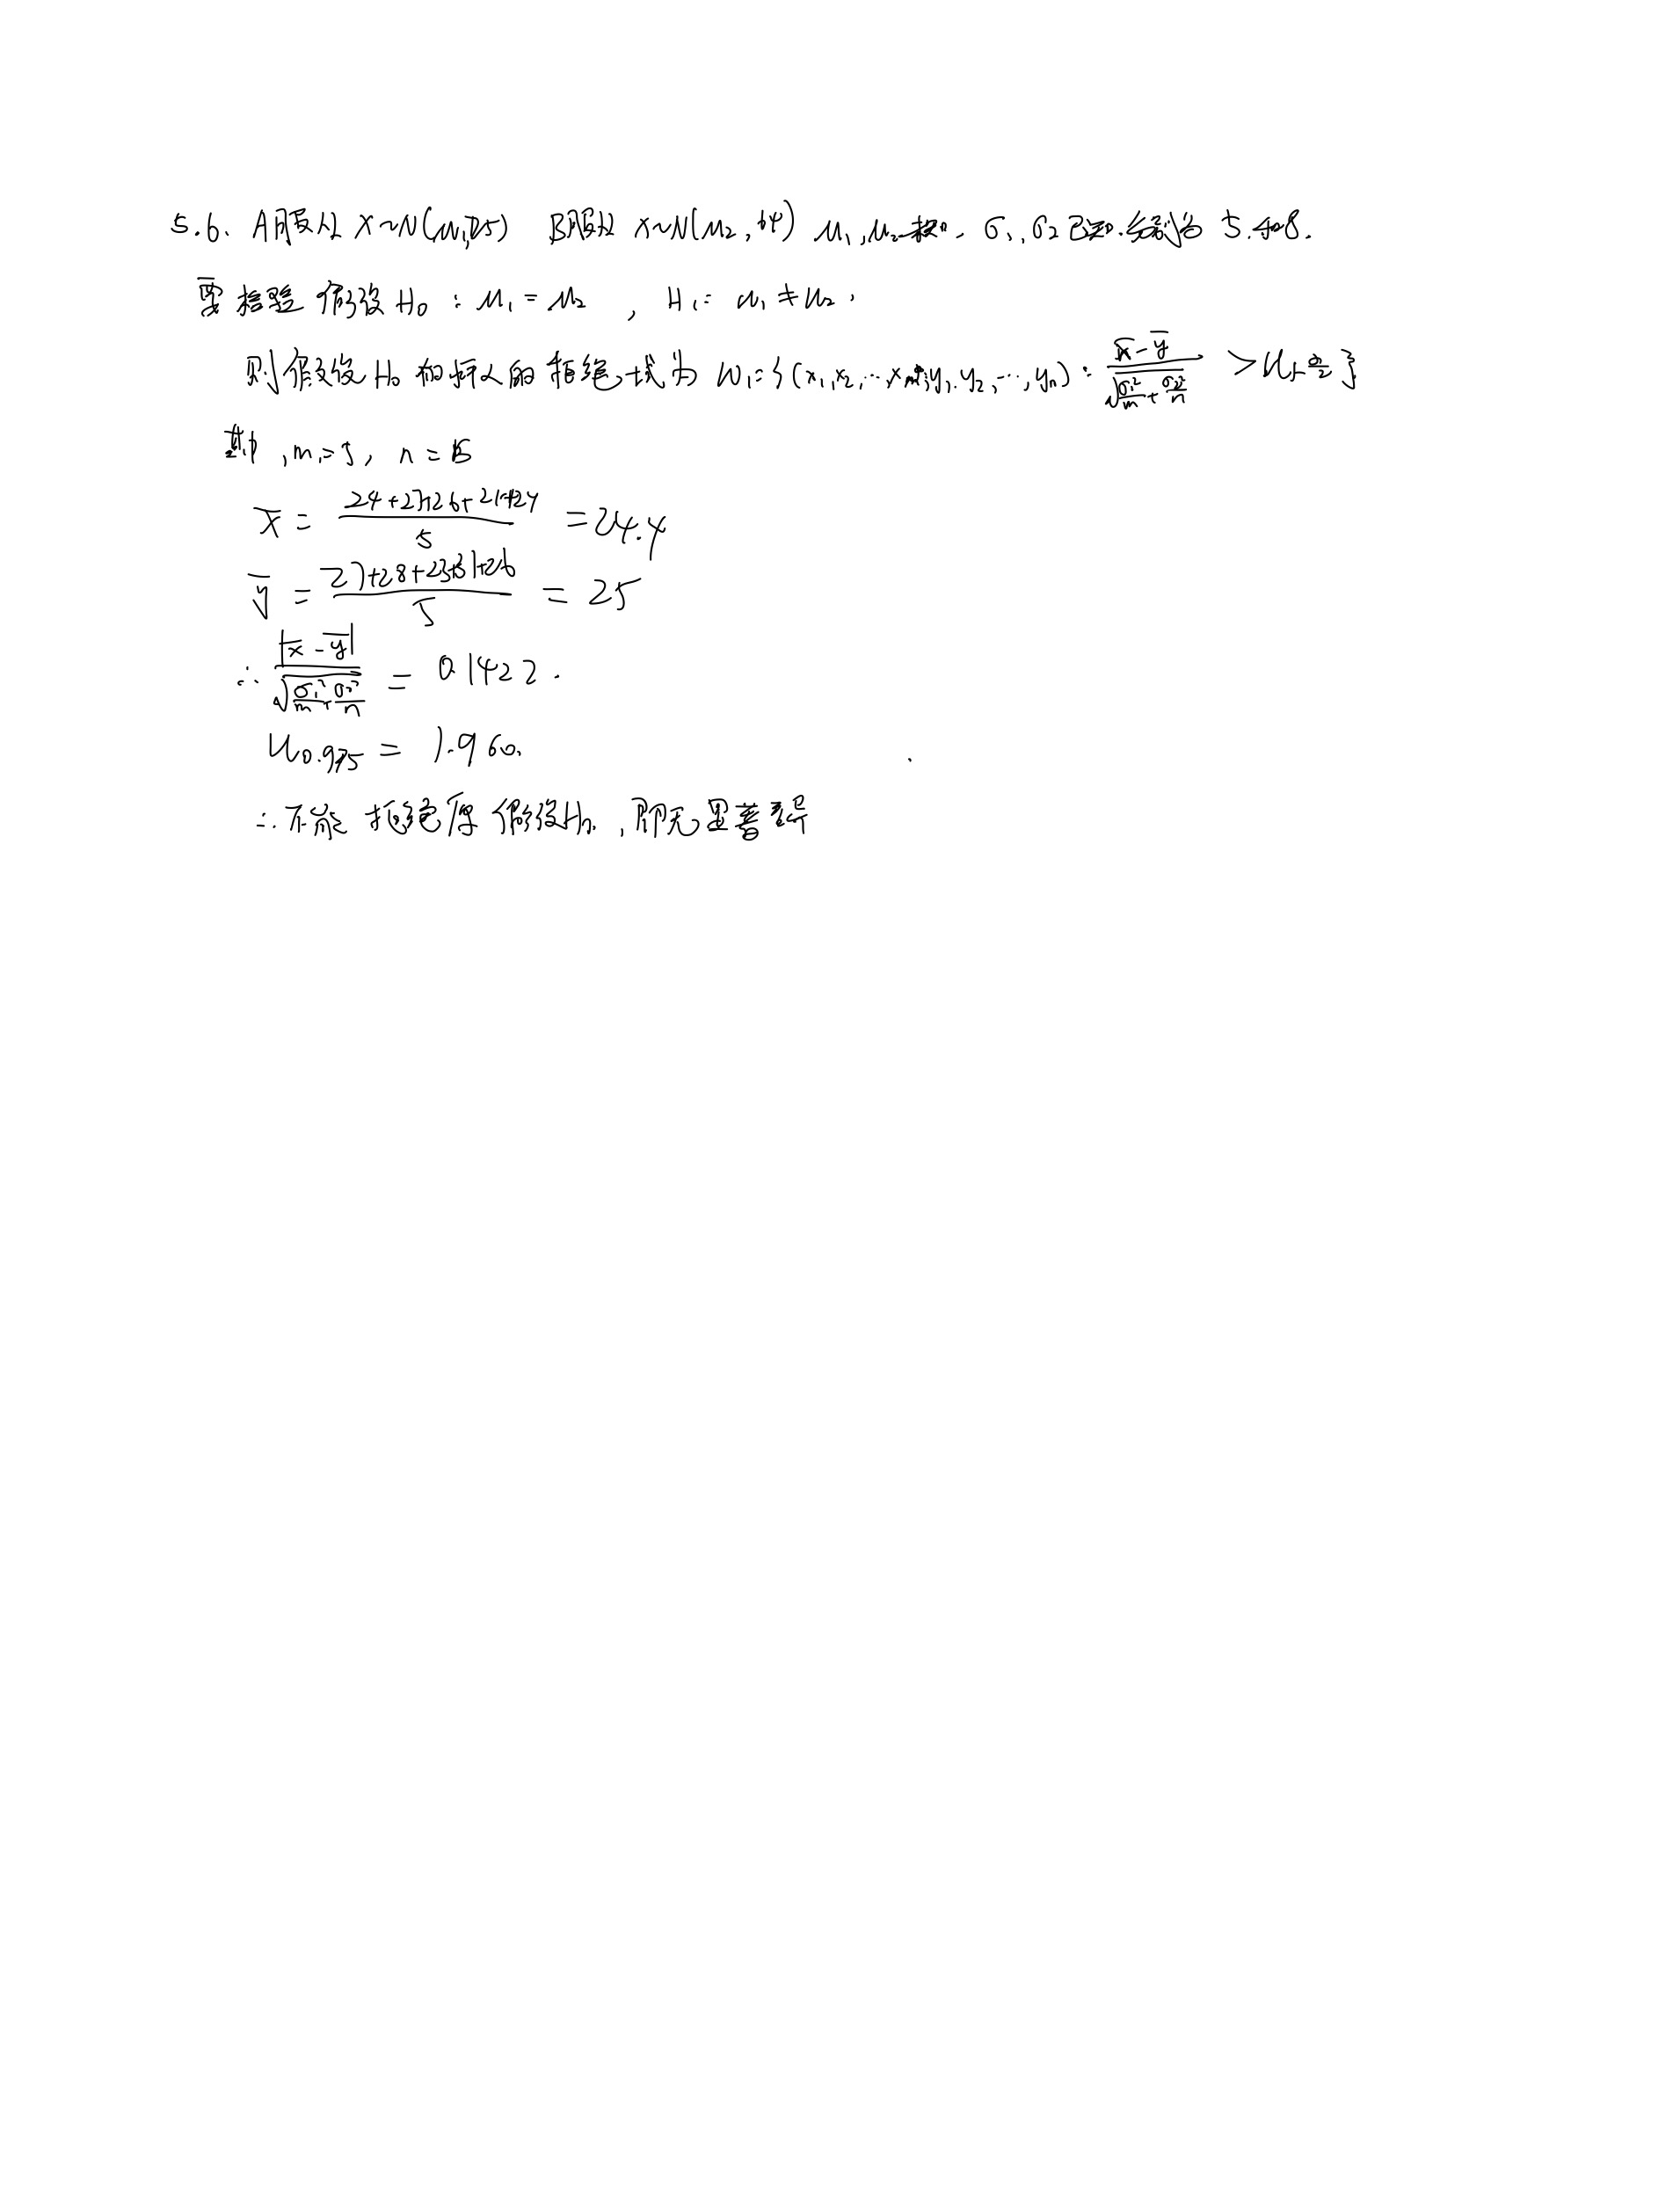 5.6. A服从 X~N(μ₁,25) B服从 X~N(μ₂,64) μ₁,μ₂未知. σ₁,σ₂已知.分别为 5.和8.
要检验 假设H₀:μ₁=μ₂ , H₁: μ₁≠μ₂.
则假设H₀ 的 的拒绝域为 W₁={(x₁,x₂,…,xₘ;y₁.y₂,…,yₙ): (x̄-ȳ)/√(σ₁²/m+σ₂²/n) >U₁₋α/₂}
其中,m=5, n=5
x̄ = (24+27+26+21+24)/5 =24.4
ȳ = (27+28+23+31+26)/5 = 25
∴ |x̄-ȳ|/√(σ₁²/m+σ₂²/n) = 0.1422.
U₀.₉₇₅ = 1.960.
∴不能 拒绝原假设H₀.,即无显著差异